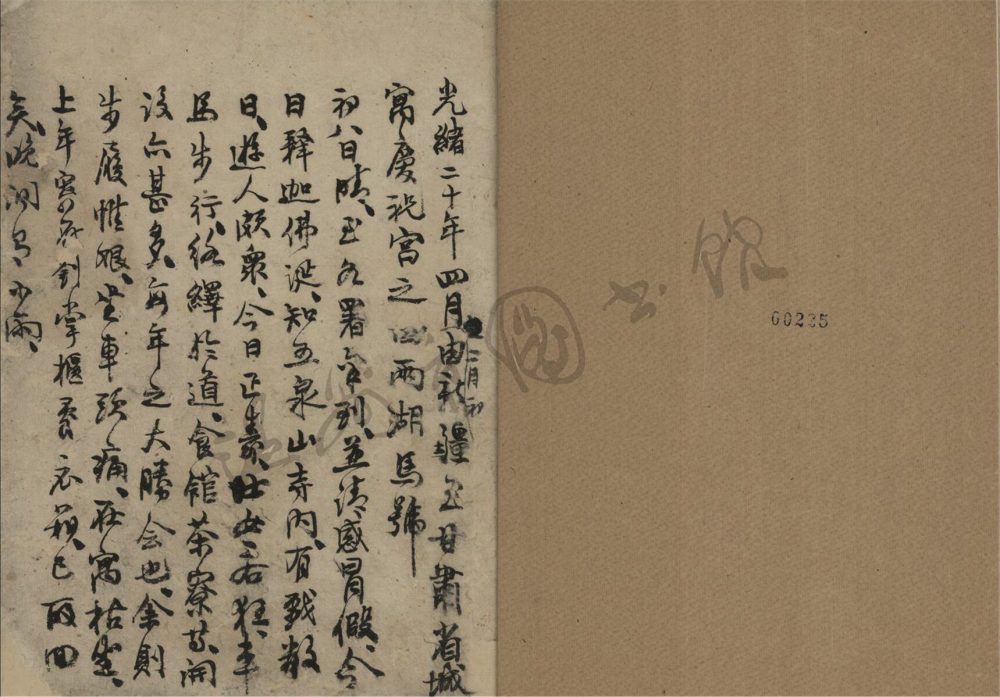 光緒二十年四月由新疆至甘肅省城
二月初
寓慶祝宮之西兩湖馬號
初八日晴、至各署禀到、並請感冒假、今
日釋迦佛誕、知五泉山寺內、有戲數
日、遊人頗衆、今日正賽、仕女若狂、車
馬步行、絡繹於道、食館茶寮、開
設亦甚多、每年之大勝會也、余則
步履惟艱、坐車頭痛、在寓枯坐、
上年寄存劉掌櫃衣箱、已取回
矣、晚間有小雨、
館
書
圖
00225